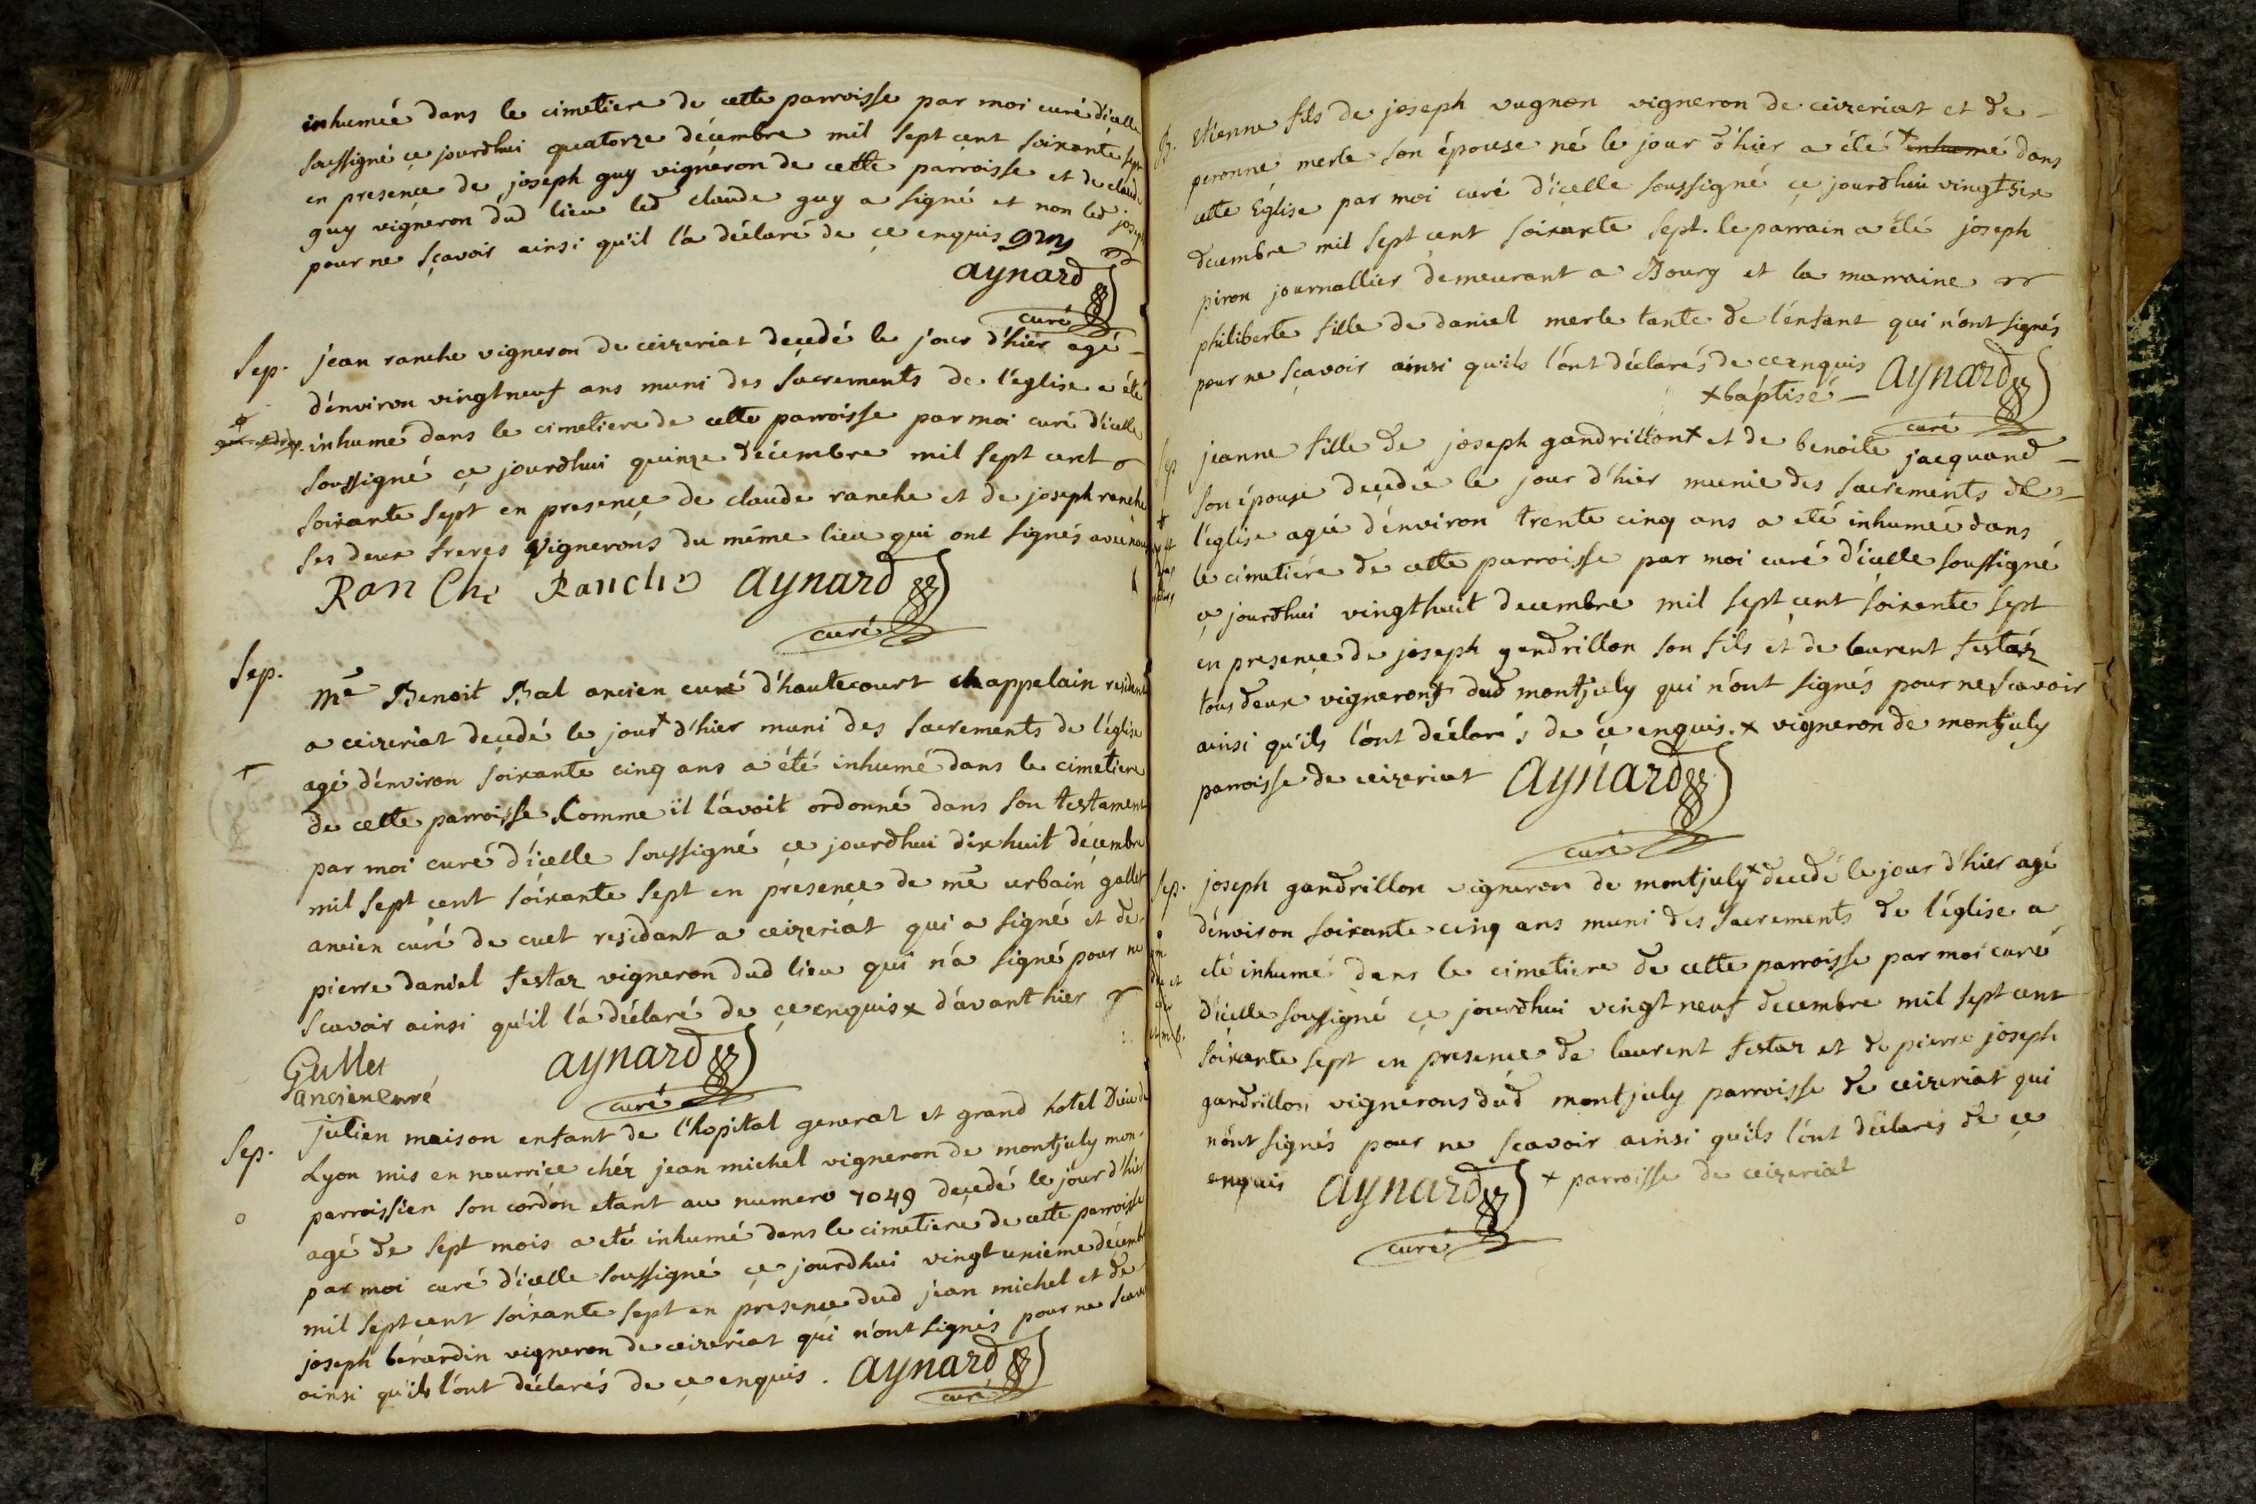 inhumée dans le cimetiere de cette parroisse par moi curé d'icelle
soussigné ce jourdhui quatorze décembre mil sept cent soixante sept
en presence de joseph guy vigneron de cette parroisse et de claude
guy vigneron dud lieu led claude guy a signé et non led joseph
pour ne sçavoir ainsi qu'il l'a déclaré de ce enquis guy
aynard
curé
Sep. jean ranche vigneron de ceizeriat decedé le jour d'hier agé
d'environ vingtneuf ans muni des sacrements de l'eglise a été
inhumé dans le cimetiere de cette parroisse par moi curé d'icelle
soussigné ce jourdhui quinze décembre mil sept cent
soixante sept en presence de claude ranche et de joseph ranche
ses deux freres vignerons du même lieu qui ont signés avec nous
Ran Che Ranche aynard
curé
Sep. Me Benoit Bal ancien curé d'hautecourt chappelain resident
a ceizeriat decedé le jour + d'hier muni des sacrements de l'église
agé d'environ soixante cinq ans a été inhumé dans le cimetiere
de cette parroisse comme il l'avoit ordonné dans son testament
par moi curé d'icelle soussigné ce jourdhui dixhuit décembre
mil sept cent soixante sept en presence de me urbain gallet
ancien curé de cuet residant a ceizeriat qui a signé et de
pierre daniel festaz vigneron dud lieu qui n'a signé pour ne
scavoir ainsi qu'il l'a déclaré de ce enquis x d'avant hier
Gullet
ancien curé
aynard
curé
Sep. julien maison enfant de l'hopital general et grand hotel Dieu de
Lyon mis en nourrice chéz jean michel vigneron de montjuly mon
parroissien son cordon etant au numero 7049 decedé le jour d'hier
agé de sept mois a eté inhumé dans le cimetiere de cette parroisse
par moi curé d'icelle soussigné ce jourdhui vingt unieme décembre
mil sept cent soixante sept en presence dud jean michel et de
joseph berardin vigneron de ceizeriat qui n'ont signés pour ne scavoir
ainsi qu'ils l'ont déclarés de ce enquis. aynard
curé
B. etienne fils de joseph vugnon vigneron de ceizeriat et de
peronne merle son épouse né le jour d'hier a été + inhumé dans
cette Église par moi curé d'icelle soussigné ce jourdhui vingtsix
decembre mil sept cent soixante sept. le parrain a été joseph
piron journallier demeurant a Bourg et la marraine
philiberte fille de daniel merle tante de l'enfant qui n'ont signés
pour ne sçavoir ainsi qu'ils l'ont déclarés de ce enquis aynard
x baptisé
curé
Sep jeanne fille de joseph gandrillon + et de benoite jacquand
son épouse decedée le jour d'hier munie des sacrements de
l'église agée d'environ trente cinq ans a eté inhumée dans
le cimetiére de cette parroisse par moi curé d'icelle soussigné
ce jourdhui vingthuit decembre mil sept cent soixante sept
en presence de joseph gendrillon son fils et de laurent festaz
tous deux vignerons dud montjuly qui n'ont signés pour ne scavoir
ainsi qu'ils l'ont déclarés de ce enquis. x vigneron de montjuly
parroisse de ceizeriat aynard
curé
Sep. joseph gandrillon vigneron de montjuly x decedé le jour d'hier agé
d'environ soixante cinq ans muni des sacrements de l'église a
eté inhumé dans le cimetiere de cette parroisse par moi curé
d'icelle soussigné ce jourdhui vingt neuf decembre mil sept cent
soixante sept en presence de laurent festaz et de pierre joseph
gandrillon vignerons dud montjuly parroisse de ceizeriat qui
n'ont signés pour ne scavoir ainsi qu'ils l'ont déclarés de ce
enquis aynard x parroisse de ceizeriat
curé